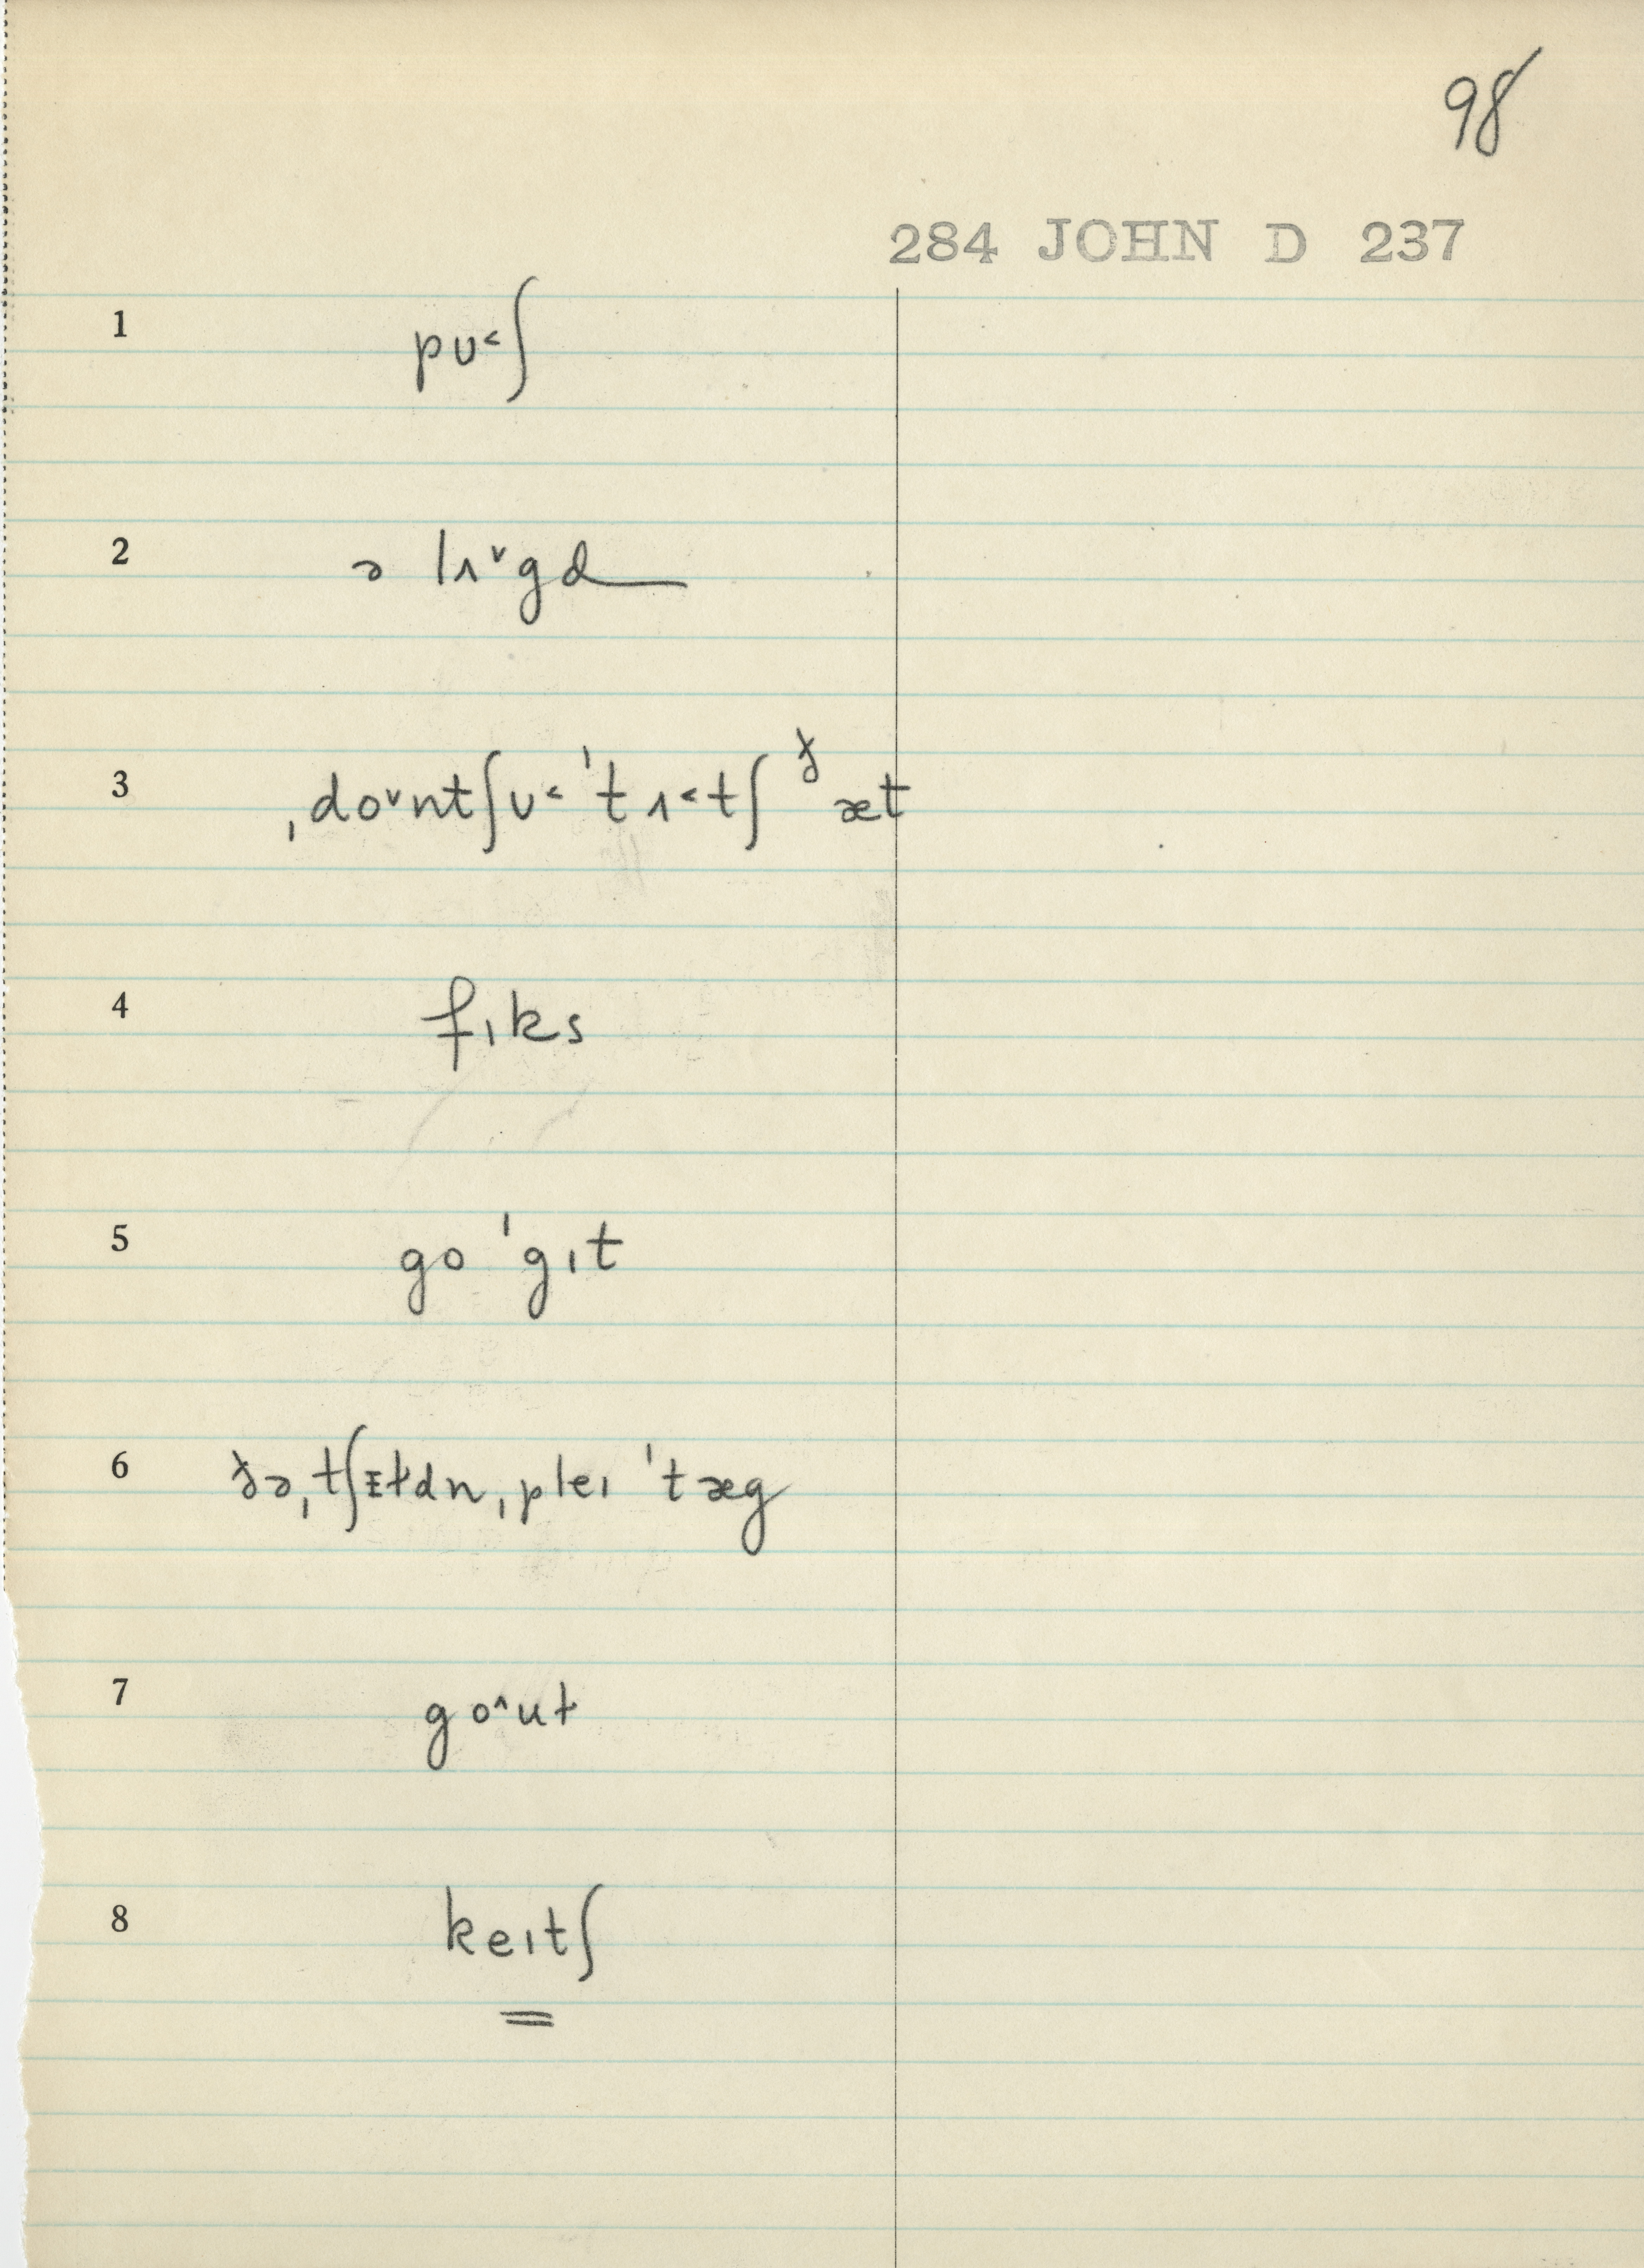 98
284 JOHN D 237
1 pʊ˂ʃ
2 ə lʌ˅gd
3 ˌdo˅ntʃʊ˂ ˈtʌ˂tʃ ðæt
4 fɪks
5 go ˈgɪt
6 ðəˌtʃɪɫdn ˌpleɪ ˈtæg
7 go˄ut
8 keɪtʃ